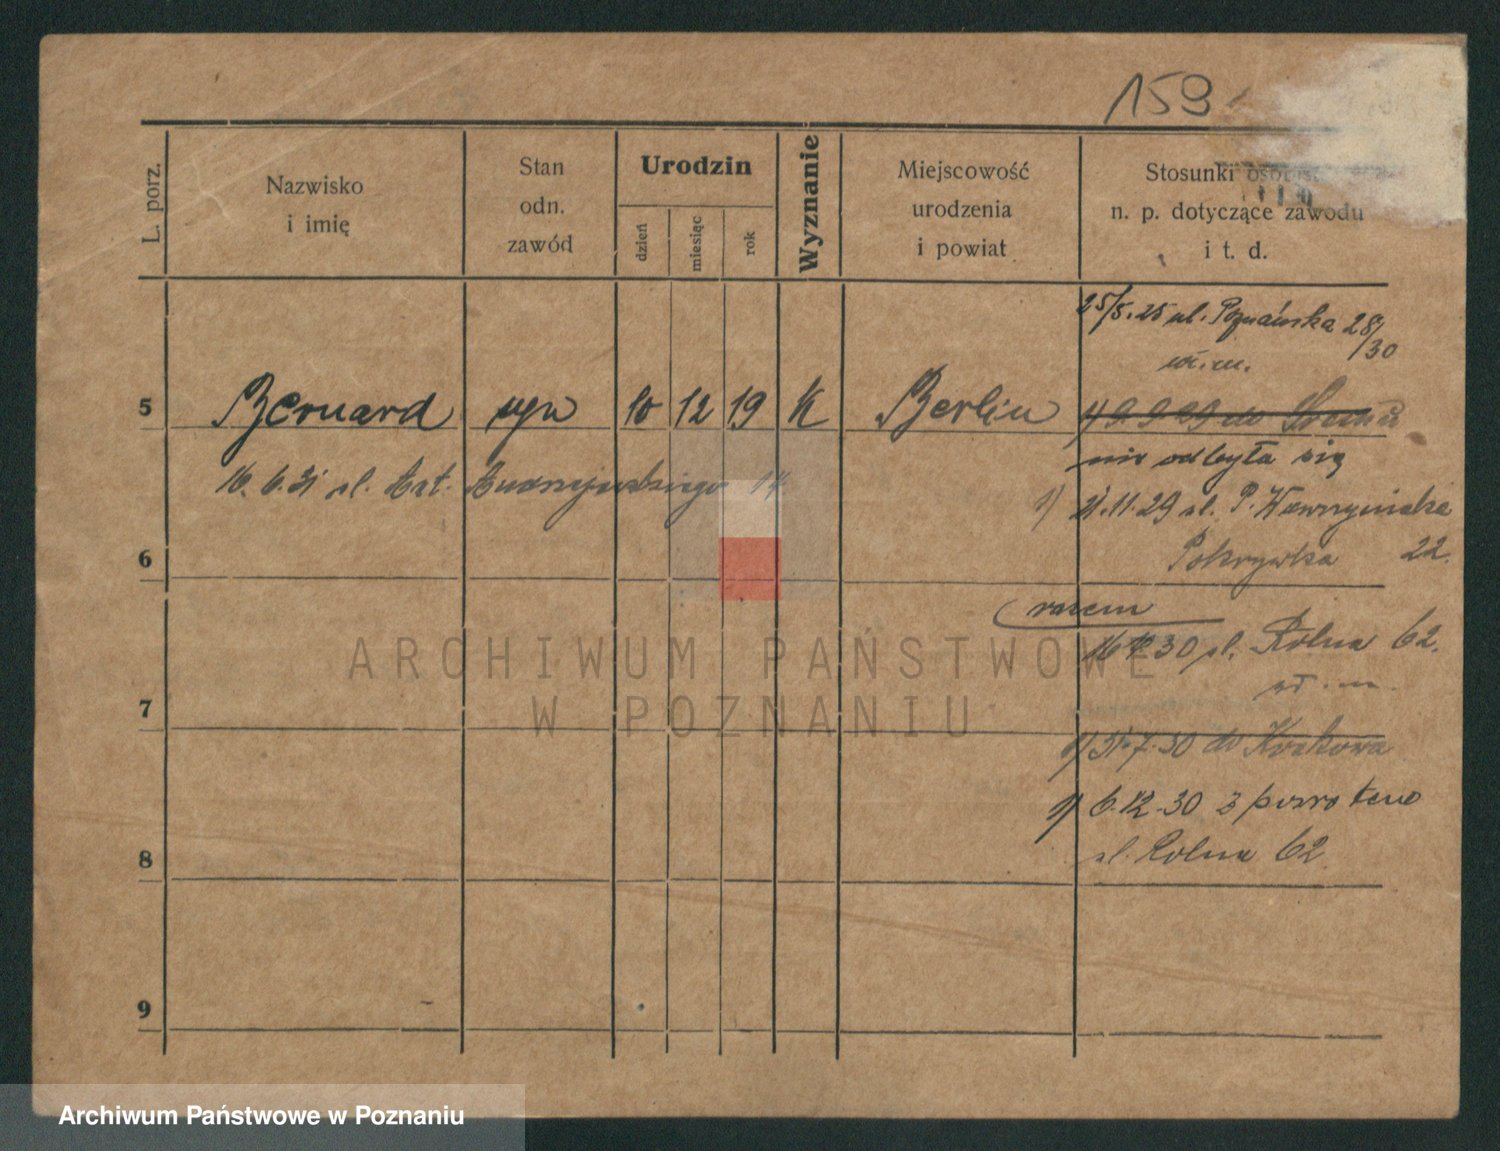 159
L. porz.
Nazwisko
i imię
Stan
odn.
zawód
Urodzin
dzień
miesiąc
rok
Wyznanie
Miejscowość
urodzenia
i powiat
Stosunki
n. p. dotyczące zawodu
i t. d.
25/5.25 ul. Poznańska 28/30
m.
5 Bernard syn 10 12 19 K Berlin
1) 9.9.29 do
nie odbyła się
16.6.31 ul. 14
1) 21.11.29 ul. P. Wawrzyniaka
Pokrywka 22.
6
razem
30 ul. Rolna 62.
m.
ARCHIWUM PAŃSTWOWE
W POZNANIU
7
1) 31.7.30 do Krakowa
1) 6.12.30 z powrotem
ul. Rolna 62
8
9
Archiwum Państwowe w Poznaniu